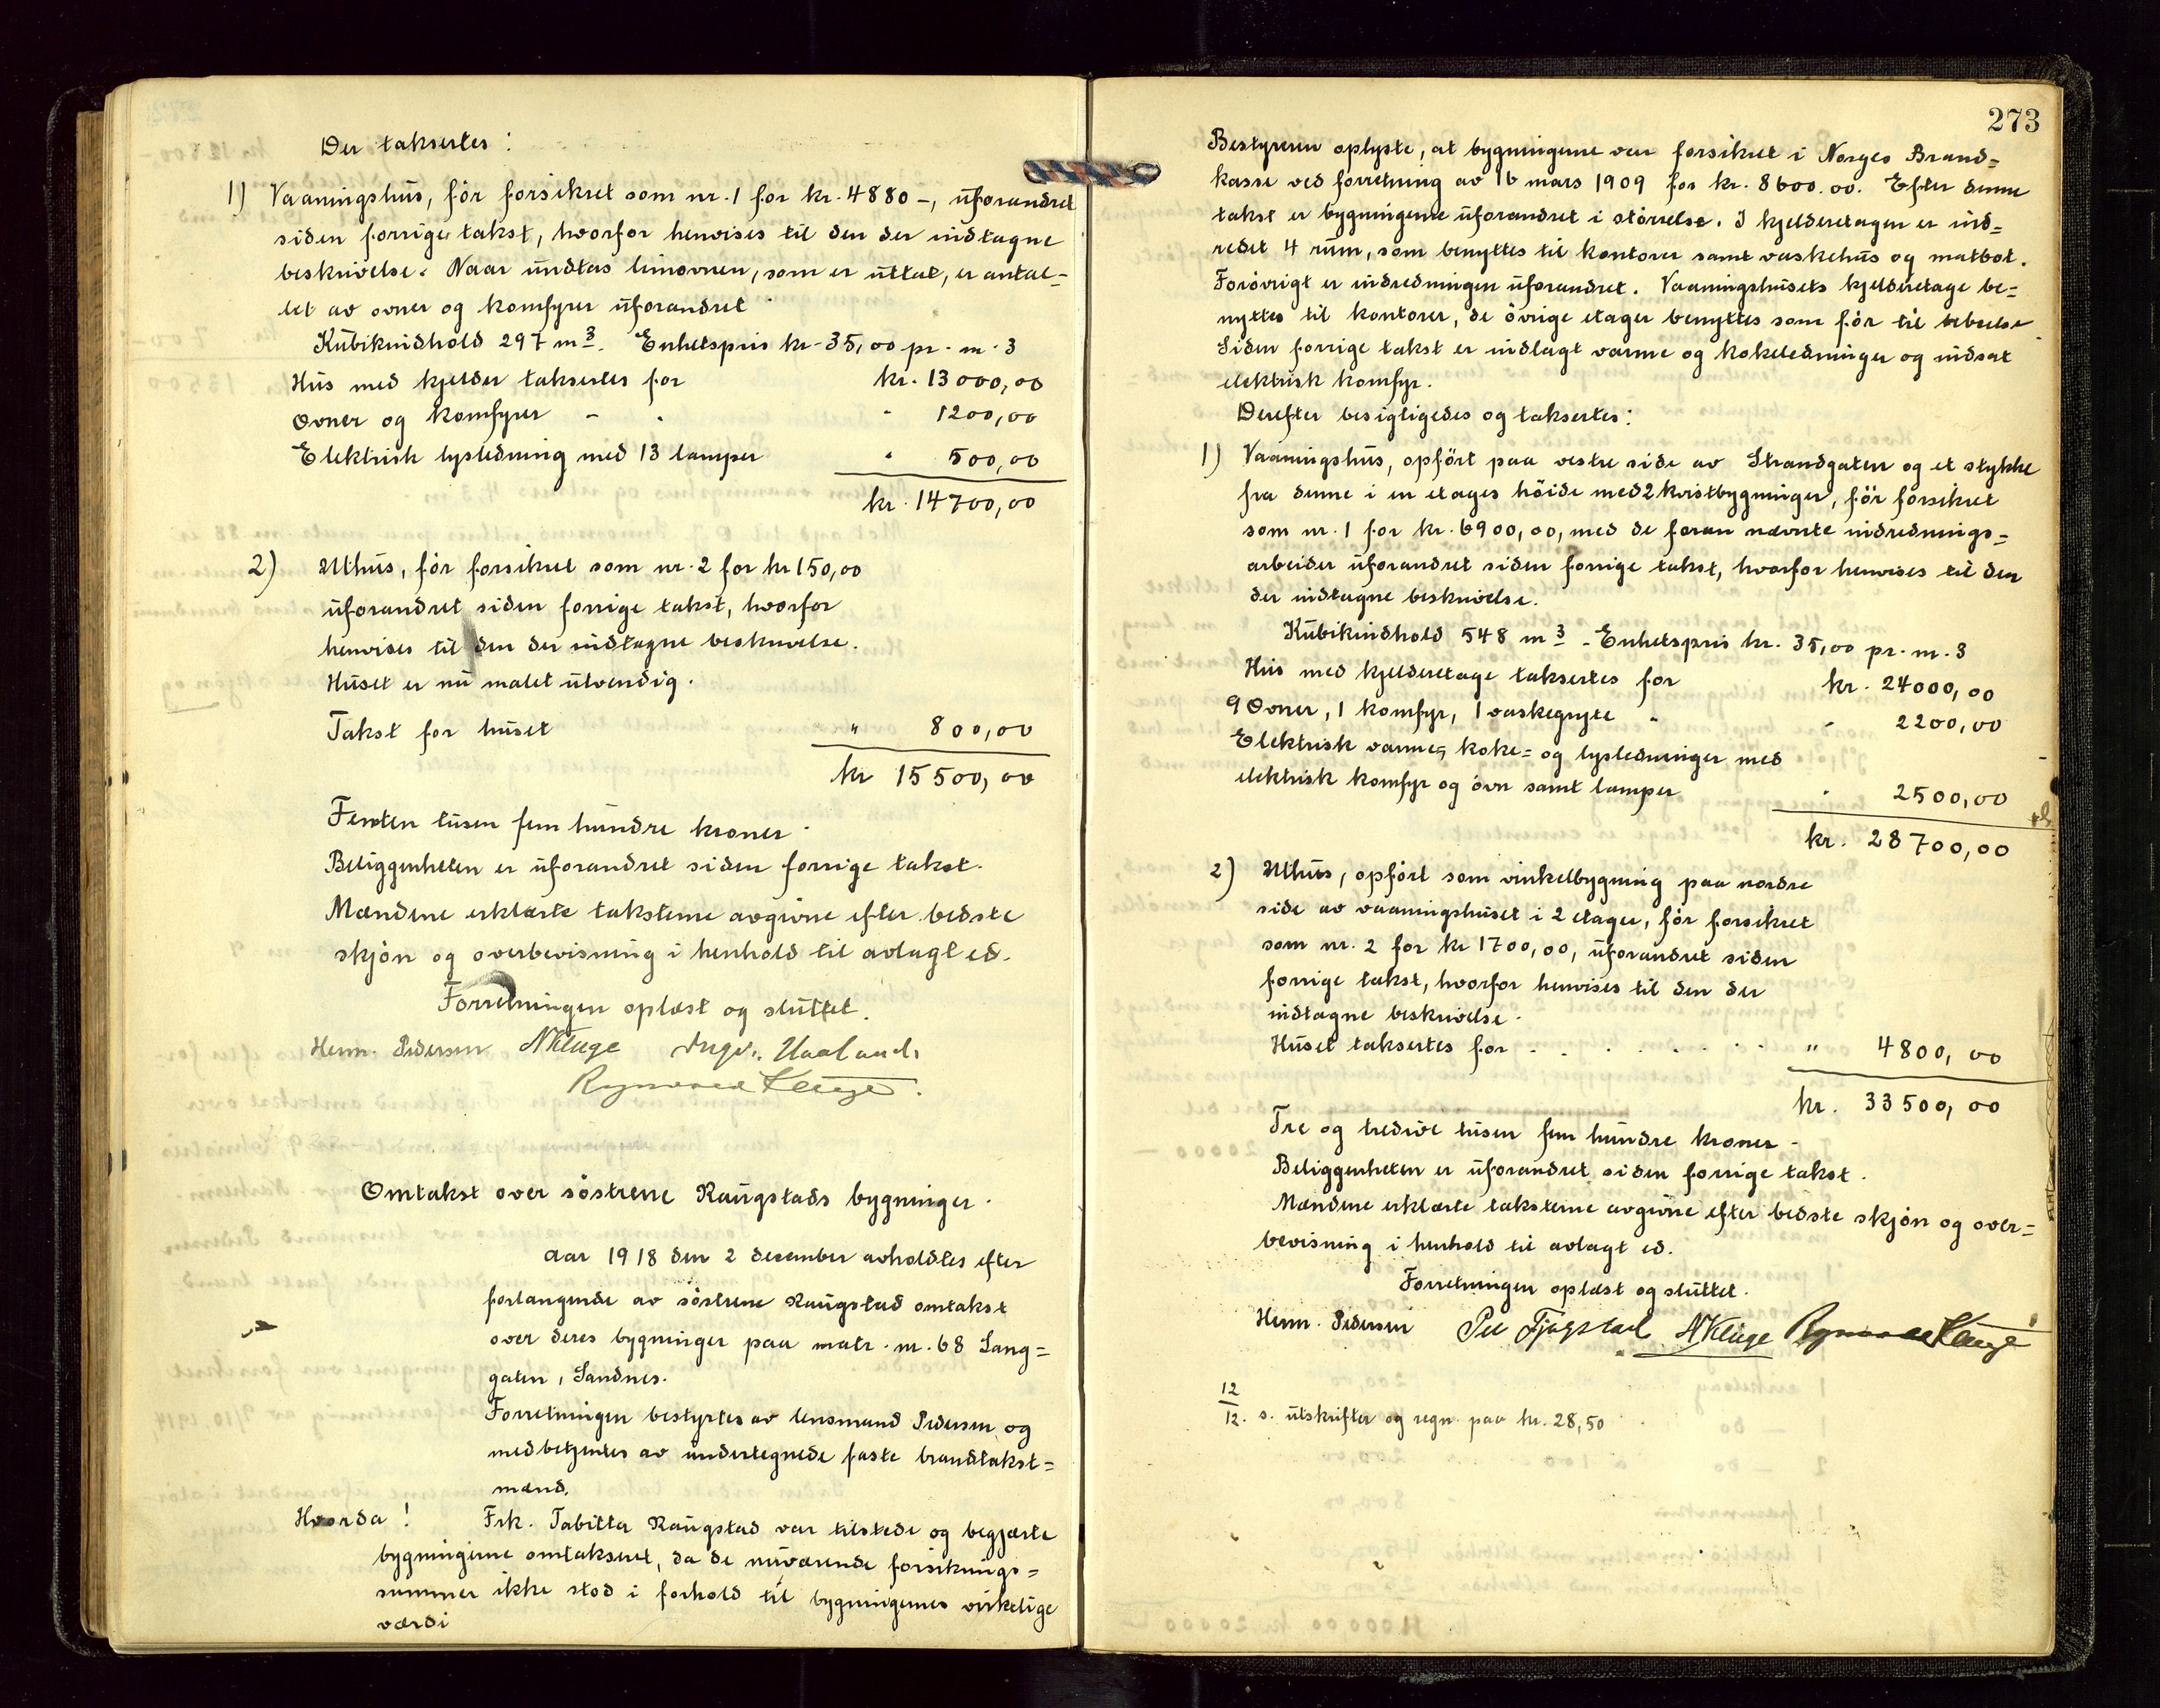 Der taksertes:
1) Vaaningshus, før forsikret som nr. 1 for kr. 4880 –, uforandret
siden forrige takst, hvorfor henvises til den der indtagne
beskrivelse. Naar undtas limovnen, som er uttat, er antal=
let av ovner og komfyrer uforandret.
Kubikindhold 297 m3. Enhetspris kr. 35,00 pr. m. 3
Hus med kjelder taksertes for kr. 13000,00
Ovner og komfyrer - . " 1200,00
Elektrisk lysledning med 13 lamper " 500,00
kr. 14700,00
2) Uthus, før forsikret som nr. 2 for kr 150,00
uforandret siden forrige takst, hvorfor
henvises til den der indtagne beskrivelse.
Huset er nu malet utvendig.
Takst for huset " 800,00
kr 15500,00
Femten tusen fem hundre kroner.
Beliggenheten er uforandret siden forrige takst.
Mændene erklærte taksterne avgivne efter bedste
skjøn og overbevisning i henhold til avlagt ed.
Forretningen oplæst og sluttet.
Henn. Pedersen NKluge Ingv. Haaland
Kluge
Omtakst over søstrene Raugstads bygninger.
Aar 1918 den 2 desember avholdtes efter
forlangende av søstrene Raugstad omtakst
over deres bygninger paa matr. nr. 68 Lang=
gaten, Sandnes.
Forretningen bestyrtes av lensmand Pedersen og
medbetjentes av undertegnede faste brandtakst=
mænd.
Hvorda! Frk. Tabitta Raugstad var tilstede og begjærte
bygningerne omtakseret, da de nuværende forsiknings=
summer ikke stod i forhold til bygningernes virkelige
værdi
273
Bestyreren oplyste, at bygningerne var forsikret i Norges Brand=
kasse ved forretning av 16 mars 1909 for kr. 8600.00. Efter denne
takst er bygningerne uforandret i størrelse. I kjelderetagen er ind=
redet 4 rum, som benyttes til kontorer samt vaskehus og matbod.
Forøvrigt er indredningen uforandret. Vaaningshusets kjelderetage be=
nyttes til kontorer, de øvrige etager benyttes som før til bebrelse
Siden forrige takst er indlagt varme og kokeledninger og indsat
elektrisk komfyr.
Derefter besigtigedes og taksertes:
1) Vaaningshus, opført paa vestre side av Strandgaten og et stykke
fra denne i en etages høide med 2 kvistbygninger, før forsikret
som nr. 1 for kr. 6900,00, med de foran nævnte indrednings=
arbeider uforandret siden forrige takst, hvorfor henvises til den
der indtagne beskrivelse.
Kubikindhold 548 m3 - Enhetspris kr. 35,00 pr. m. 3
Hus med kjelderetage taksertes for kr. 24000,00
9 Ovner, 1 komfyr, 1 vaskegryte " " 2200,00
Elektrisk varme, koke= og lysledninger med
elektrisk komfyr og ovn samt lamper " 2500,00
kr. 28700,00
2) Uthus, opført som vinkelbygning paa nordre
side av vaaningshuset i 2 etager, før forsikret
som nr. 2 for kr 1700,00, uforandret siden
forrige takst, hvorfor henvises til den der
indtagne beskrivelse.
Huset taksertes for - . . . . . . " 4800,00
kr. 33500,00
Tre og tredive tusen fem hundre kroner -
Beliggenheten er uforandret siden forrige takst.
Mændene erklærte taksterne avgivne efter bedste skjøn og over=
bevisning i henhold til avlagt ed.
Forretningen oplæst og sluttet.
Henn. Pedersen NKluge Kluge
12/12. s. utskrifter og regn. paa kr. 28,50